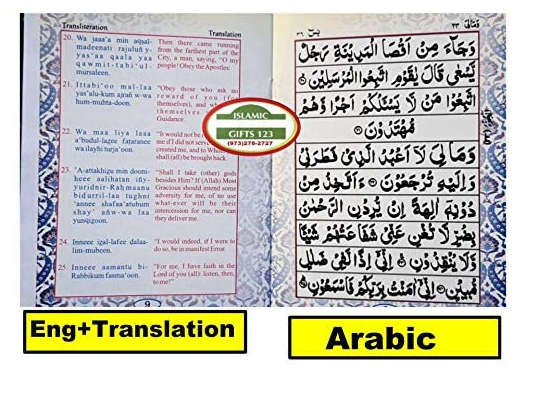 Transliteration
20. Wa jaaa'a min aqsal-
madeenati rajuluñy-
yas'aa qaala yaa
qawmit-tabi'ul-
mursaleen.
21. Ittabi'oo mal-laa
yas'alu-kum ajrañ w-wa
hum-muhta-doon.
22. Wa maa liya laaa
a'budul-lazee fataranee
wa ilayhi turja'oon.
23. 'A-attakhizu min dooni-
heee aalihatan iñy-
yuridnir-Rahmaanu
bidurril-laa tughni
'annee shafaa'atuhum
shay' añw-wa laa
yunqizoon.
24. Inneee izal-lafee dalaa-
lim-mubeen.
25. Inneee aamantu bi-
Rabbikum fasma'oon.
Translation
Then there came running
from the farthest part of the
City, a man, saying, "O my
people! Obey the Apostles:
"Obey those who ask no
reward of you (for
themselves), and who
themselves
Guidance.
"It would not be
me if I did not serve
created me, and to Whom
shall (all) be brought back.
"Shall I take (other) gods
besides Him? If (Allah) Most
Gracious should intend some
adversity for me, of no use
whatever will be their
intercession for me, nor can
they deliver me.
"I would indeed, if I were to
do so, be in manifest Error.
"For me, I have faith in the
Lord of you (all): listen, then,
to me!"
9
ISLAMIC
GIFTS 123
(973)278-2727
وَجَآءَ مِنْ اَقْصَا الْمَدِيْنَةِ رَجُلٌ
يَّسْعٰى قَالَ يٰقَوْمِ اتَّبِعُوا الْمُرْسَلِيْنَ
اتَّبِعُوْا مَنْ لَّا يَسْـَٔلُكُمْ اَجْرًا وَّهُمْ
مُّهْتَدُوْنَ
وَمَا لِيَ لَآ اَعْبُدُ الَّذِيْ فَطَرَنِيْ
وَاِلَيْهِ تُرْجَعُوْنَ ءَاَتَّخِذُ مِنْ
دُوْنِهٖٓ اٰلِهَةً اِنْ يُّرِدْنِ الرَّحْمٰنُ
بِضُرٍّ لَّا تُغْنِ عَنِّيْ شَفَاعَتُهُمْ شَيْـًٔا
وَّلَا يُنْقِذُوْنِ اِنِّيْٓ اِذًا لَّفِيْ ضَلٰلٍ
مُّبِيْنٍ اِنِّيْٓ اٰمَنْتُ بِرَبِّكُمْ فَاسْمَعُوْنِ
Eng+Translation
Arabic